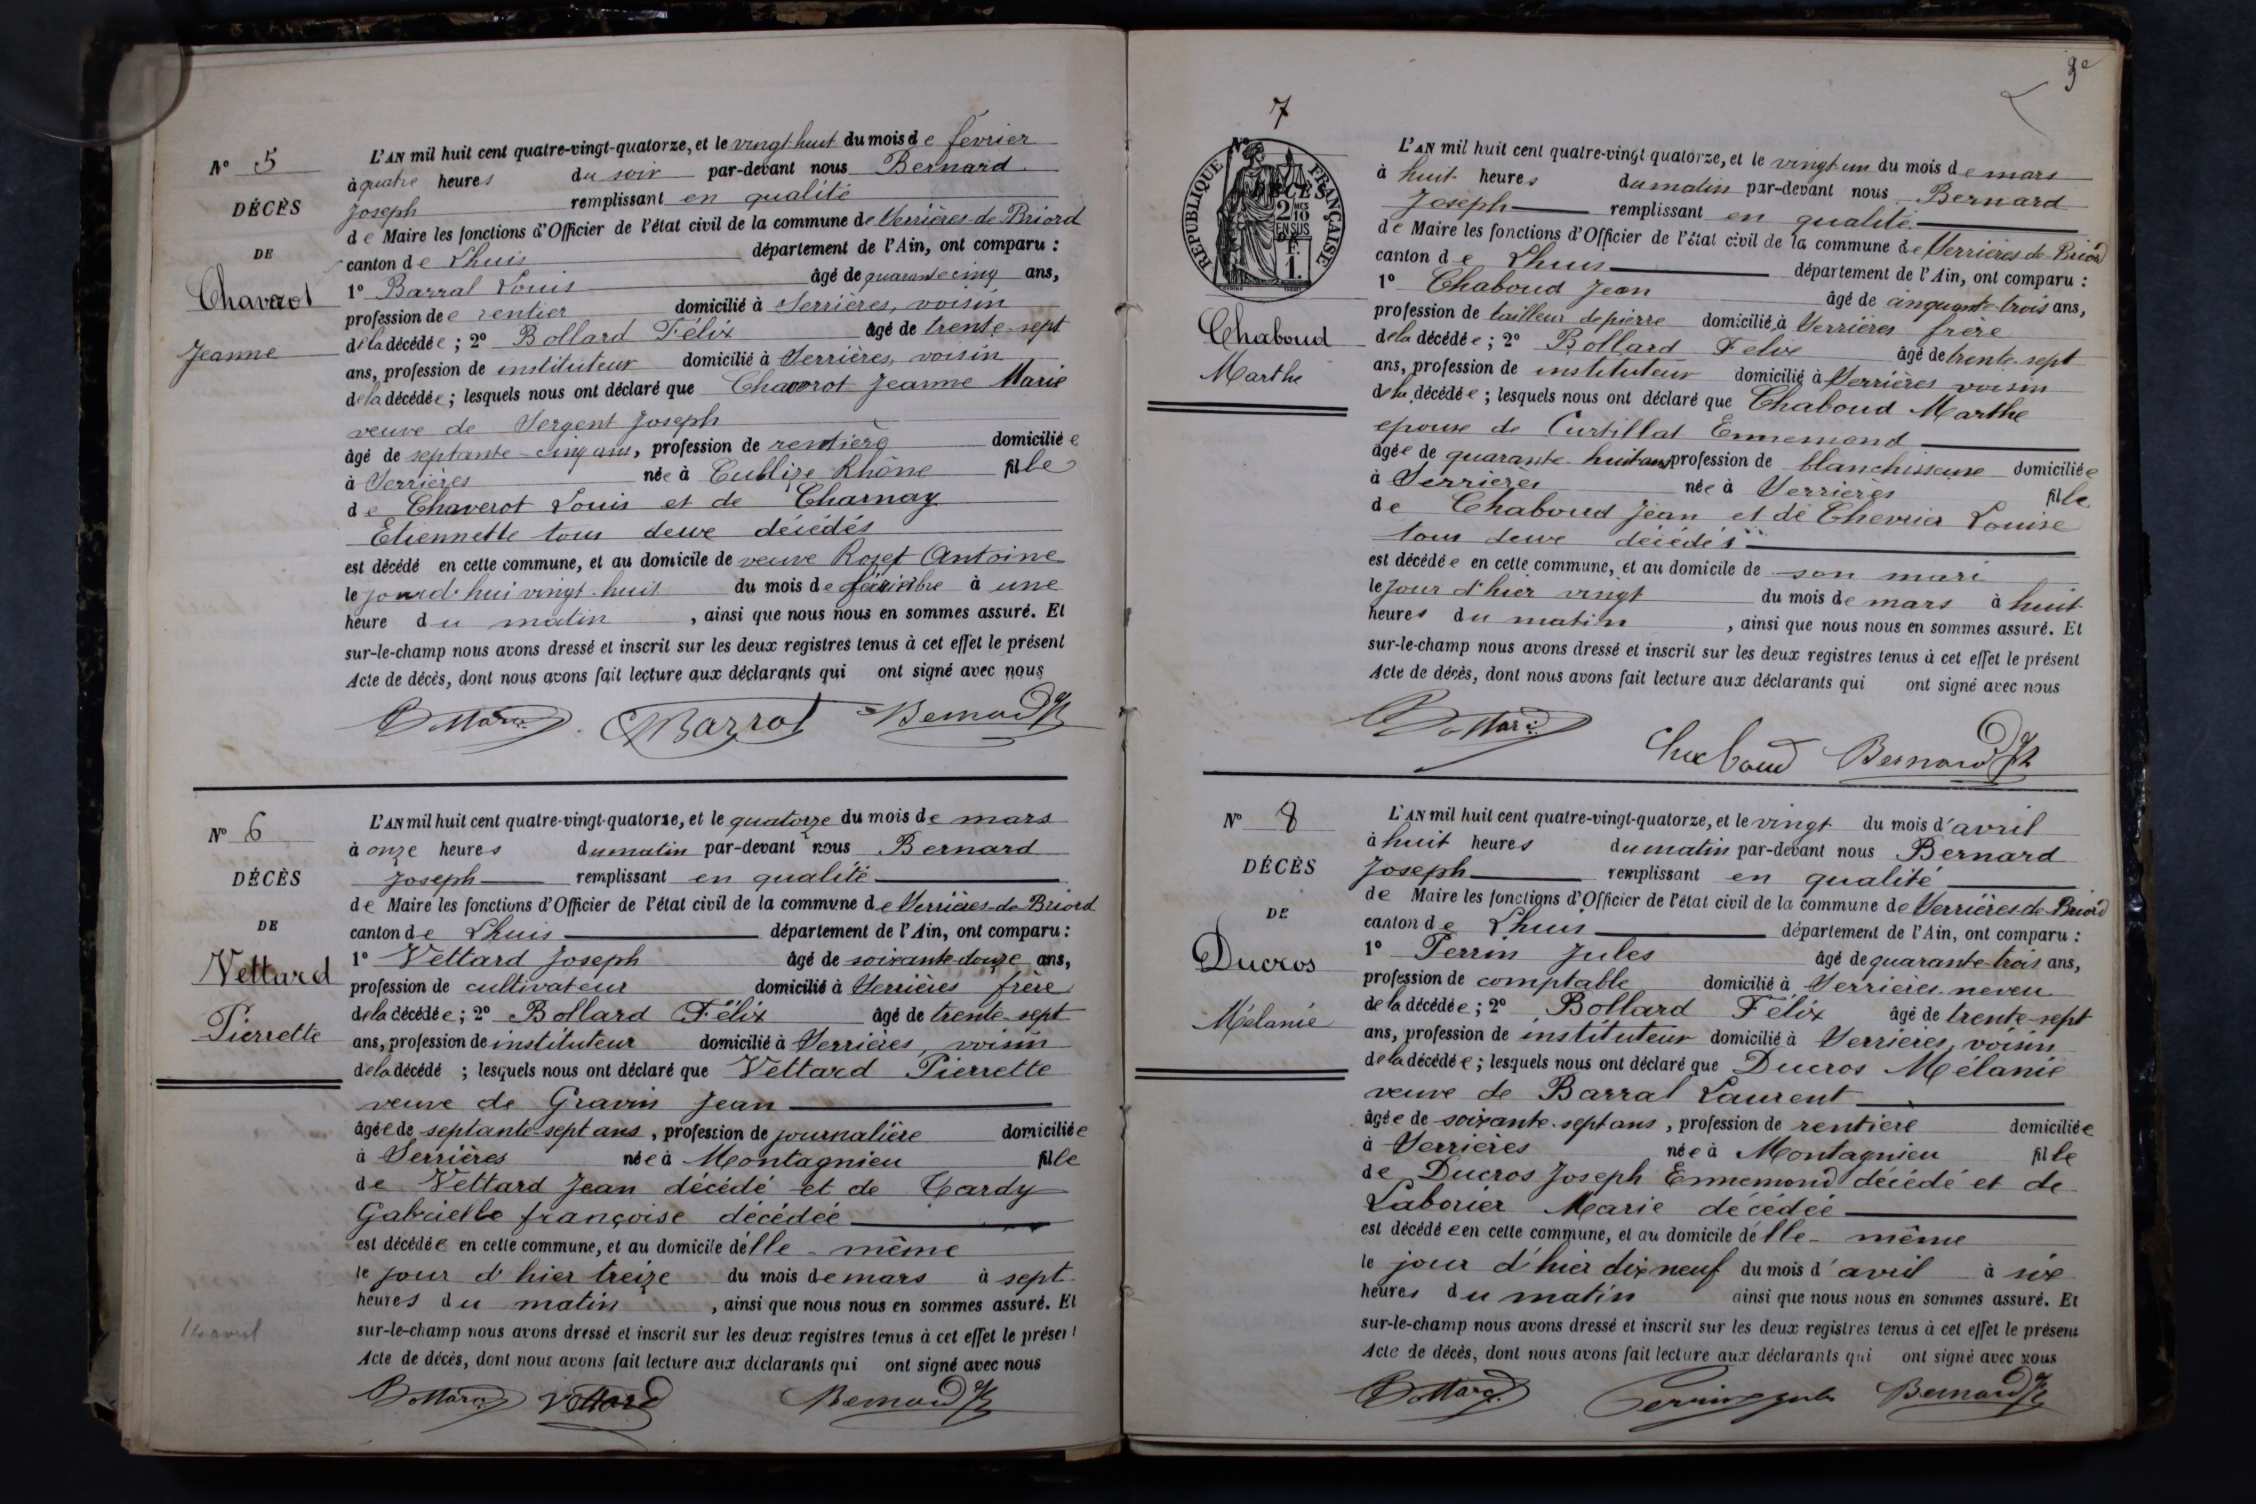 N° 5
DÉCÈS
DE
Chaverot
Jeanne
L'AN mil huit cent quatre-vingt-quatorze, et le vingt huit du mois de février
à quatre heures du soir par-devant nous Bernard
Joseph remplissant en qualité
de Maire les fonctions d'Officier de l'état civil de la commune de Serrières-de-Briord
canton de Lhuis département de l'Ain, ont comparu :
1° Barral Louis âgé de quarante cinq ans,
profession de rentier domicilié à Serrières, voisin
de la décédée ; 2° Bollard Félix âgé de trente-sept
ans, profession de instituteur domicilié à Serrières, voisin
de la décédée ; lesquels nous ont déclaré que Chaverot Jeanne Marie
veuve de Sergent Joseph
âgé de septante-cinq ans, profession de rentière domiciliée
à Serrières née à Cublize Rhône fille
de Chaverot Louis et de Charnay
Etiennette tous deux décédés
est décédé en cette commune, et au domicile de veuve Rojet Antoine
le jourd'hui vingt-huit du mois de à une
heure du matin , ainsi que nous nous en sommes assuré. Et
sur-le-champ nous avons dressé et inscrit sur les deux registres tenus à cet effet le présent
Acte de décès, dont nous avons fait lecture aux déclarants qui ont signé avec nous
Bollard Barral Bernard Jh
N° 6
DÉCÈS
DE
Vettard
Pierrette
L'AN mil huit cent quatre-vingt-quatorze, et le quatorze du mois de mars
à onze heures du matin par-devant nous Bernard
Joseph remplissant en qualité
de Maire les fonctions d'Officier de l'état civil de la commune de Serrières-de-Briord
canton de Lhuis département de l'Ain, ont comparu :
1° Vettard Joseph âgé de soixante-douze ans,
profession de cultivateur domicilié à Serrières frère
de la décédée ; 2° Bollard Félix âgé de trente-sept
ans, profession de instituteur domicilié à Serrières, voisin
de la décédé ; lesquels nous ont déclaré que Vettard Pierrette
veuve de Gravin Jean
âgée de septante-sept ans, profession de journalière domiciliée
à Serrières née à Montagnieu fille
de Vettard Jean décédé et de Cardy
Gabrielle françoise décédée
est décédée en cette commune, et au domicile d'elle-même
le jour d'hier treize du mois de mars à sept
heures du matin , ainsi que nous nous en sommes assuré. Et
sur-le-champ nous avons dressé et inscrit sur les deux registres tenus à cet effet le présent
Acte de décès, dont nous avons fait lecture aux déclarants qui ont signé avec nous
Bollard Vettard Bernard Jh
9e
7
RÉPUBLIQUE FRANÇAISE
2/10 EN SUS
1 F.
Chaboud
Marthe
L'AN mil huit cent quatre-vingt quatorze, et le vingt-un du mois de mars
à huit heures du matin par-devant nous Bernard
Joseph remplissant en qualité
de Maire les fonctions d'Officier de l'état civil de la commune de Serrières-de-Briord
canton de Lhuis département de l'Ain, ont comparu :
1° Chaboud Jean âgé de cinquante-trois ans,
profession de tailleur de pierre domicilié à Serrières frère
de la décédée ; 2° Bollard Felix âgé de trente-sept
ans, profession de instituteur domicilié à Serrières voisin
de la décédée ; lesquels nous ont déclaré que Chaboud Marthe
epouse de Curtillat Ennemond
âgée de quarante-huit ans profession de blanchisseuse domiciliée
à Serrières née à Serrières fille
de Chaboud Jean et de Chevrier Louise
tous deux décédés
est décédée en cette commune, et au domicile de son mari
le jour d'hier vingt du mois de mars à huit
heures du matin , ainsi que nous nous en sommes assuré. Et
sur-le-champ nous avons dressé et inscrit sur les deux registres tenus à cet effet le présent
Acte de décès, dont nous avons fait lecture aux déclarants qui ont signé avec nous
Bollard Chaboud Bernard Jh
N° 8
DÉCÈS
DE
Ducros
Mélanie
L'AN mil huit cent quatre-vingt-quatorze, et le vingt du mois d'avril
à huit heures du matin par-devant nous Bernard
Joseph remplissant en qualité
de Maire les fonctions d'Officier de l'état civil de la commune de Serrières de Briord
canton de Lhuis département de l'Ain, ont comparu :
1° Perrin Jules âgé de quarante-trois ans,
profession de comptable domicilié à Serrières neveu
de la décédée ; 2° Bollard Félix âgé de trente-sept
ans, profession de instituteur domicilié à Serrières, voisin
de la décédée ; lesquels nous ont déclaré que Ducros Mélanie
veuve de Barral Laurent
âgée de soixante-sept ans, profession de rentière domiciliée
à Serrières née à Montagnieu fille
de Ducros Joseph Ennemond décédé et de
Laborier Marie décédée
est décédée en cette commune, et au domicile d'elle-même
le jour d'hier dix neuf du mois d'avril à six
heures du matin ainsi que nous nous en sommes assuré. Et
sur-le-champ nous avons dressé et inscrit sur les deux registres tenus à cet effet le présent
Acte de décès, dont nous avons fait lecture aux déclarants qui ont signé avec nous
Bollard Perrin Jules Bernard Jh